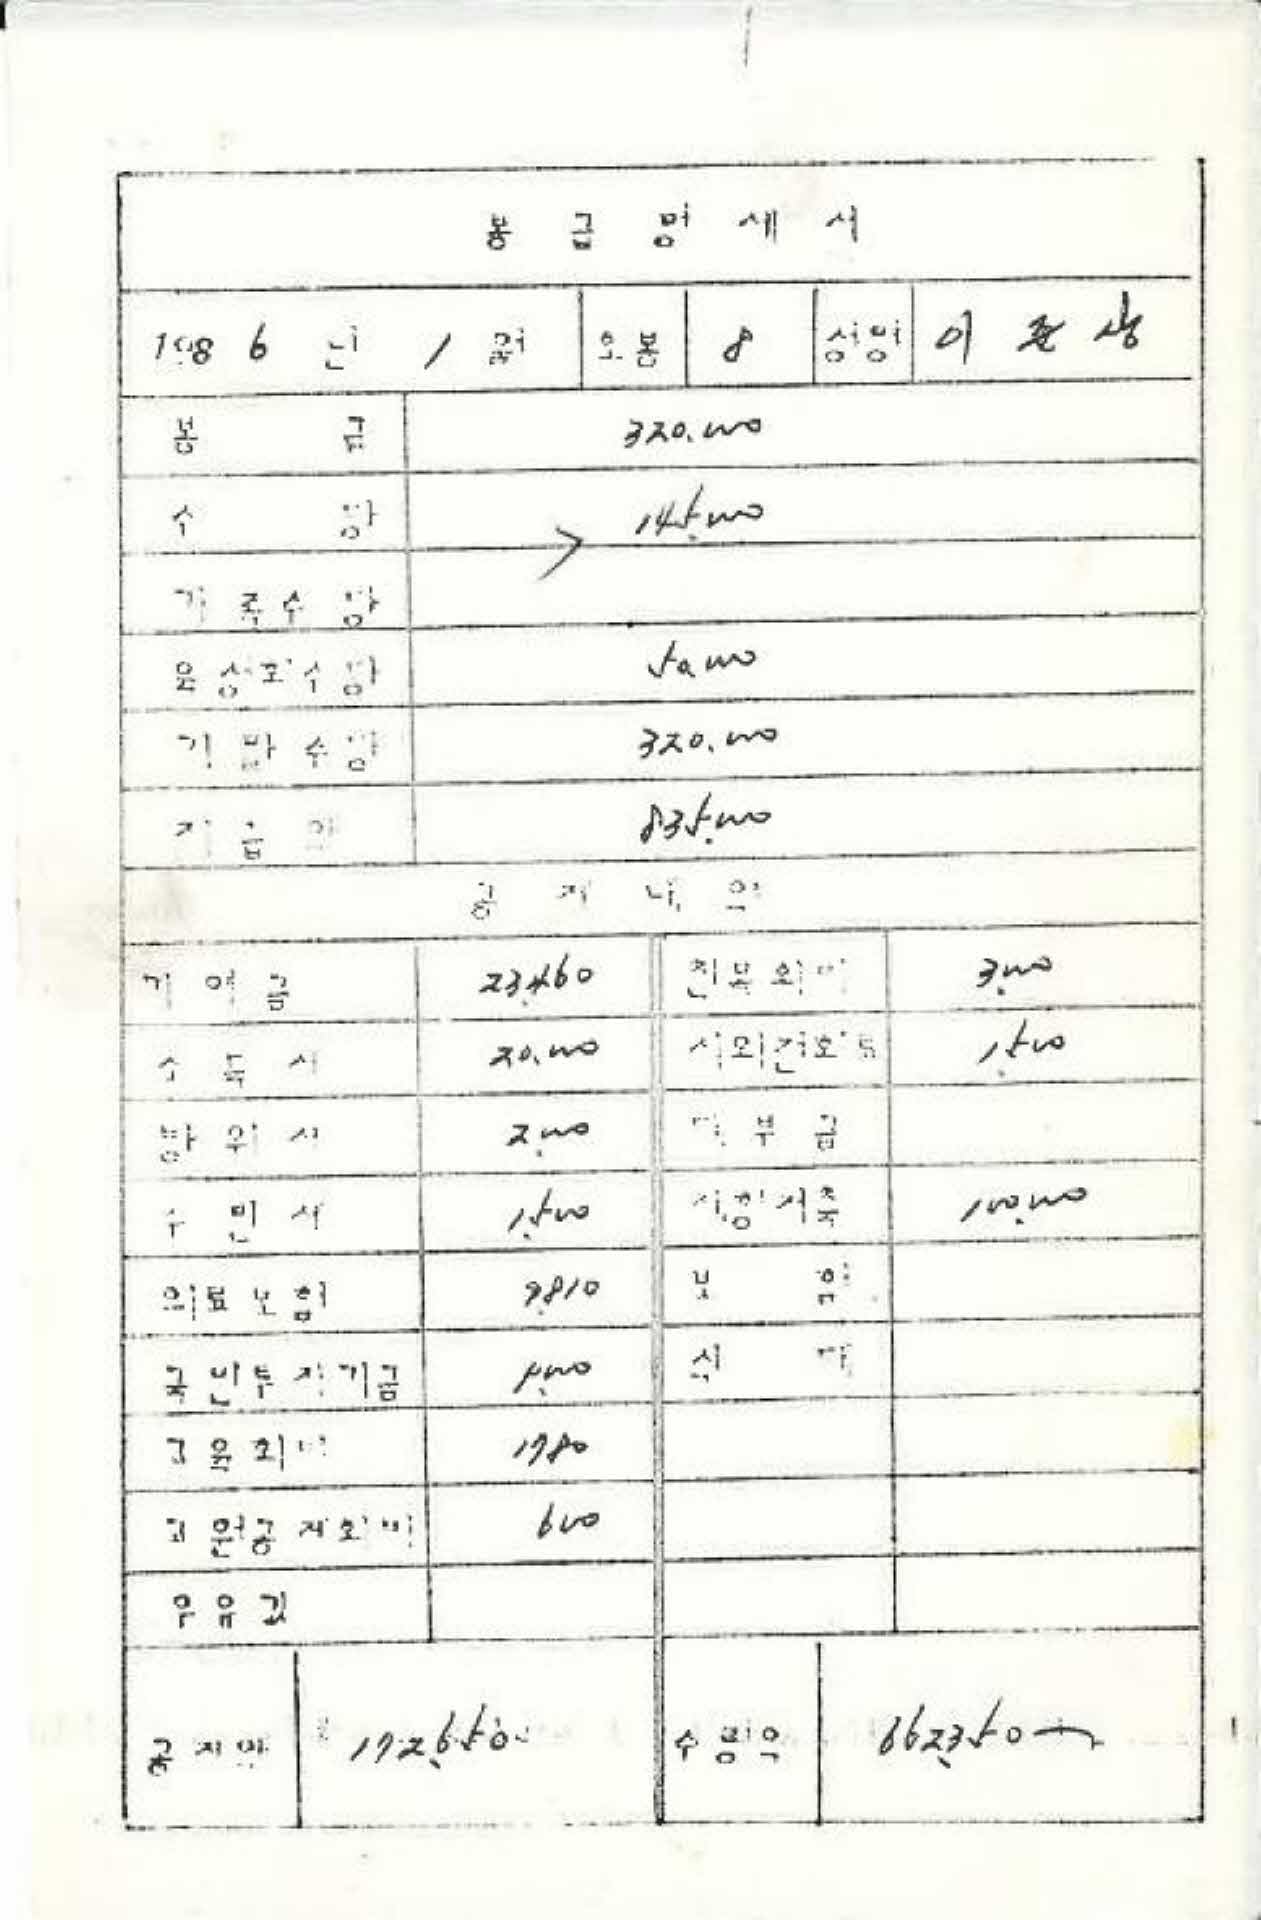 봉 급 명 세 서
1986년 1월 호봉 8 성명 이
봉 급 320.000
수 당 145.000
가 족 수 당
육 성 회 수 당 50.000
기 말 수 당 320.000
지 급 액 835.000
공 제 내 역
기 여 금 23.460 친 목 회 비 3.000
소 득 세 20.000 시외전화료 1.500
방 위 세 2.000 대 부 금
주 민 세 1.500 저축 100.000
의 료 보 험 9.810 보 험
국 민 투 자 기 금 식 대
교 육 회 비 1780
교 원 공 제 회 비 600
우 유 값
공 제 액 172.650 수 령 액 662.350